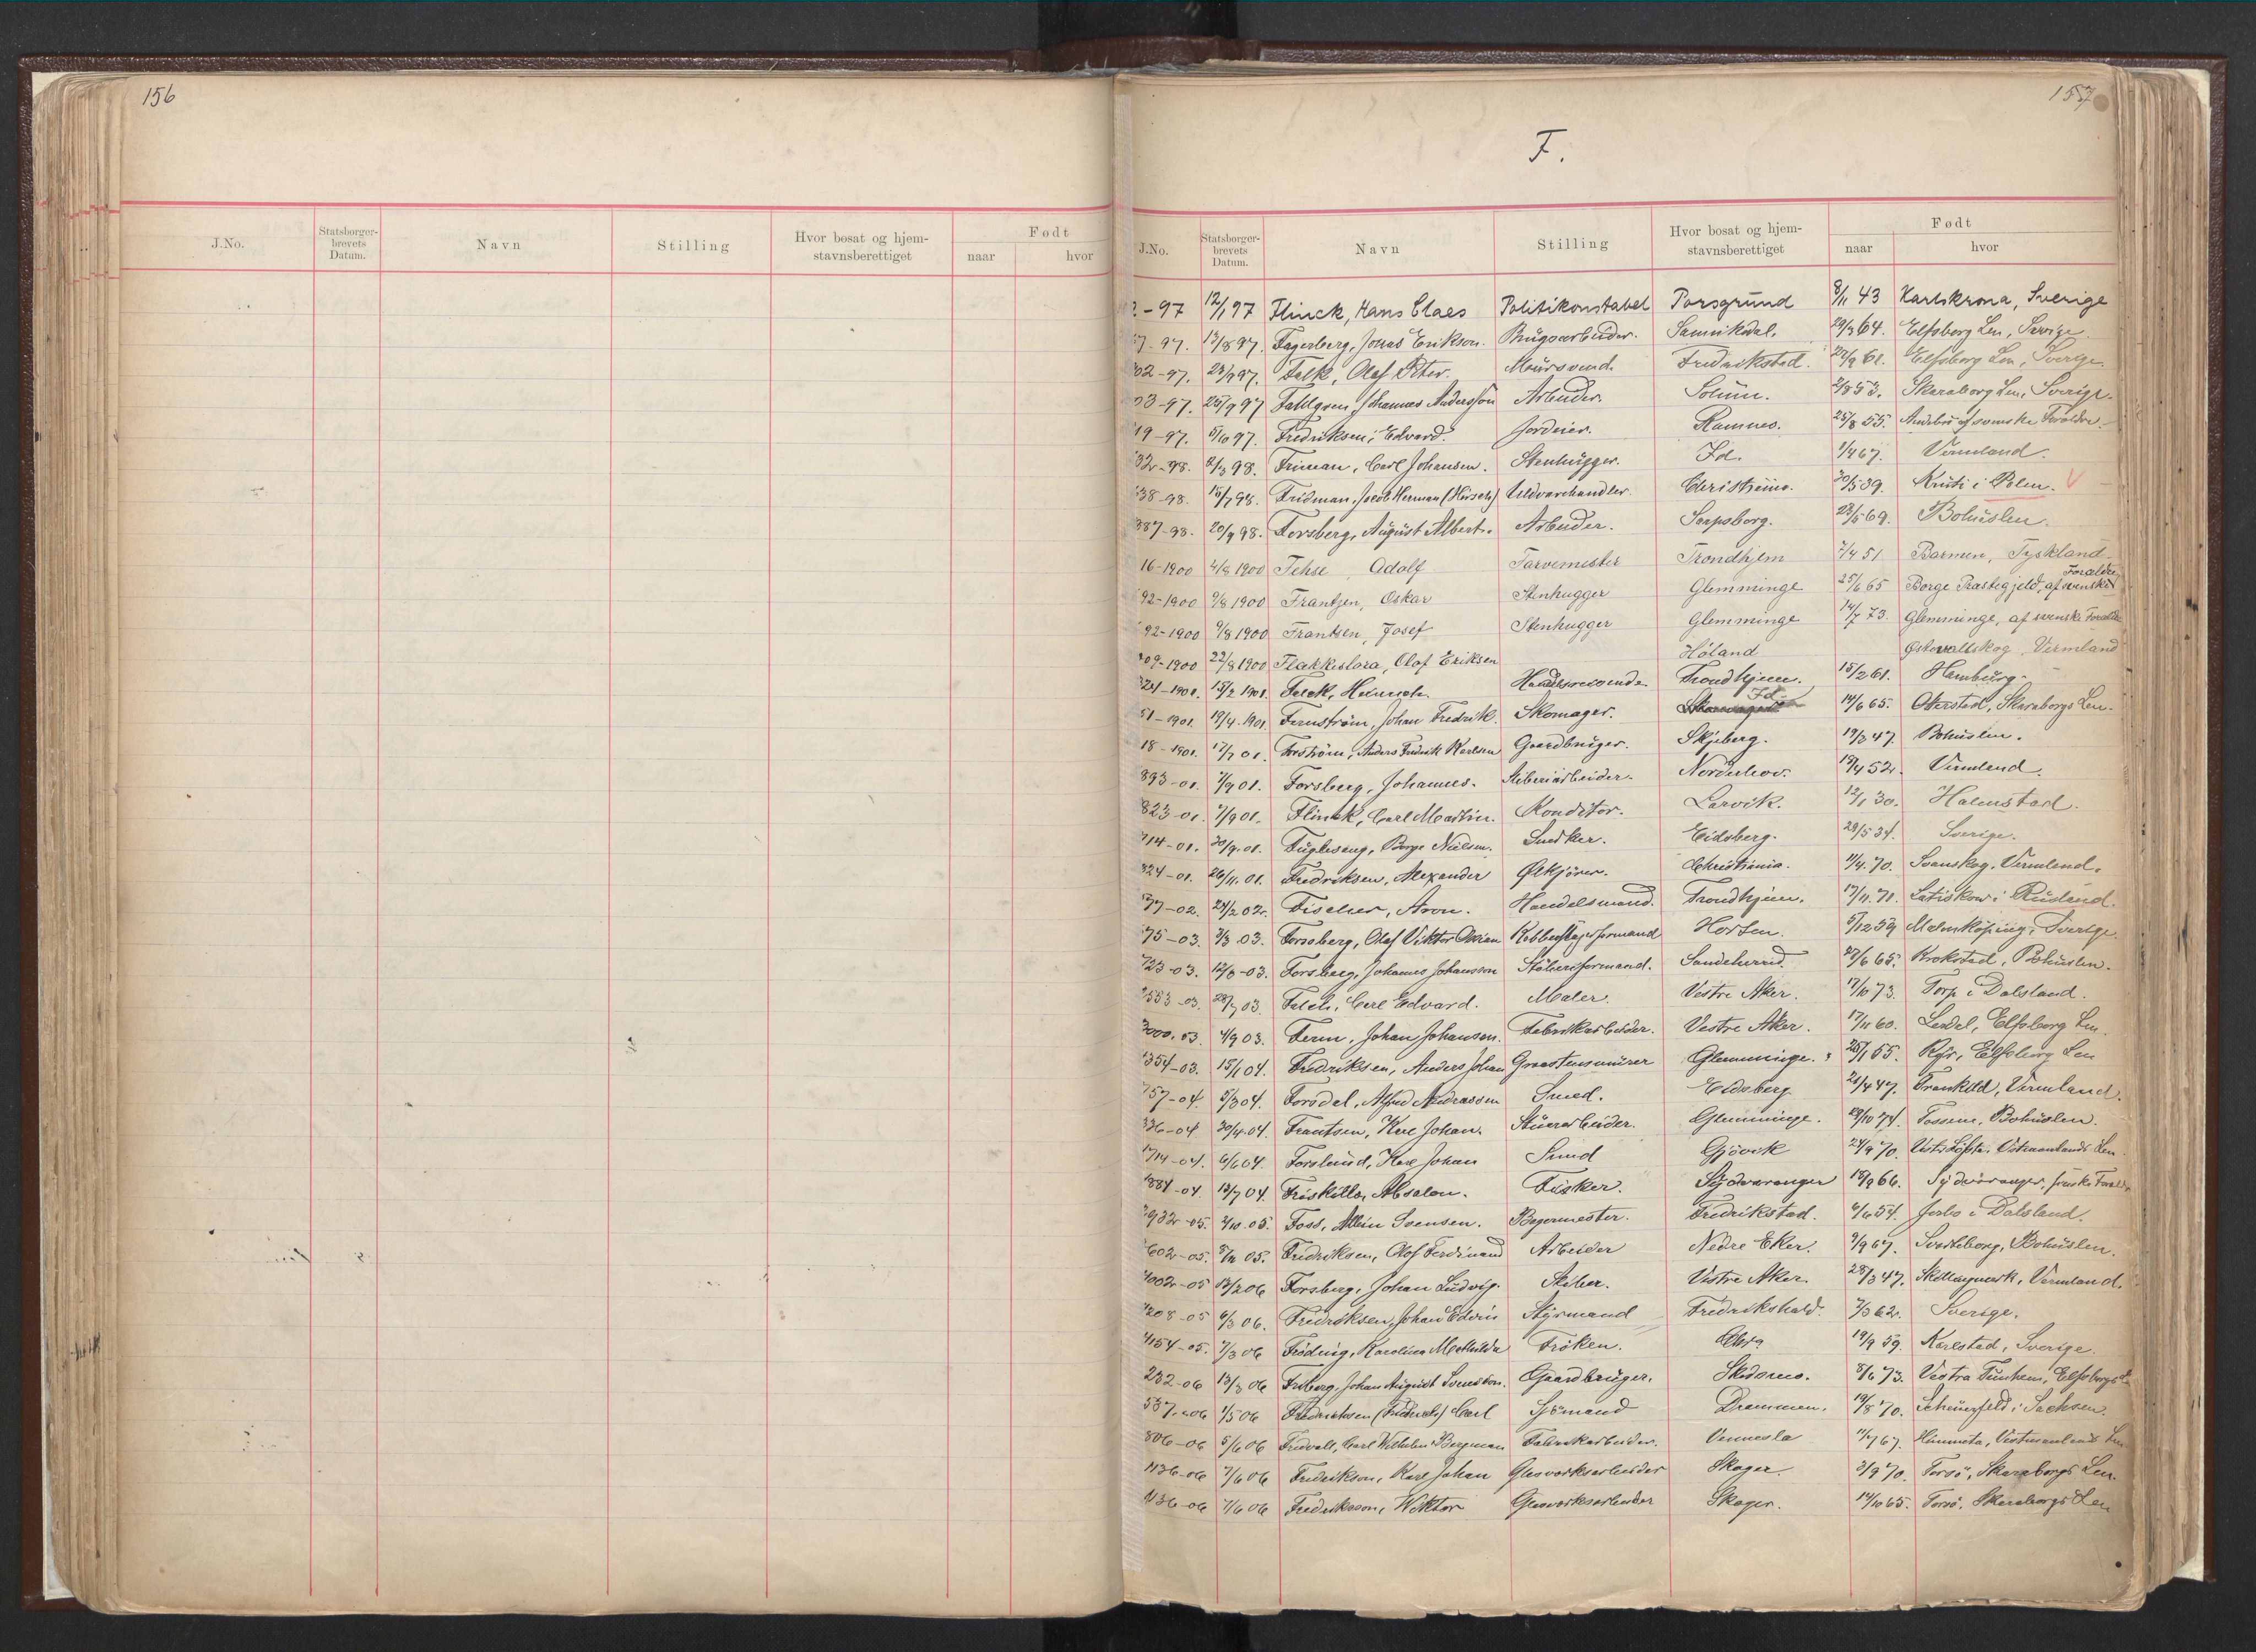 156
J.No.
Statsborger-
brevets
Datum.
Navn
Stilling
Hvor bosat og hjem-
stavnsberettiget
Født
naar
hvor
157
F.
J.No.
Statsborger-
brevets
Datum.
Navn
Stilling
Hvor bosat og hjem-
stavnsberettiget
Født
naar
hvor
-97 12/1 97 Flinck, Hans Claes Politikonstabel Porsgrund 8/11 43 Karlskrona, Sverige
-97. 13/8 97. Fagerberg, Jonas Erikson. Brugsarbeider. 29/3 64. Elfsborg Len, Sverige
02-97. 23/9 97. Falk, Olaf Peter. Mursvend. Fredrikstad. Elfsborg Len, Sverige.
03-97. 25/9 97 Fahlgren, Johannes Andersson Arbeider. Solum. 2/8 53. Skaraborg Len, Sverige.
19-97. 5/10 97. Fredriksen, Edvard. Jordeier. Ramnes. 25/8 55. Andebu af svenske Forældre.
32-98. 2/3 98. Friman, Carl Johansen. Stenhugger. Id. 1/4 67. Vermland.
38-98. 15/7 98. Fridman, Jacob Herman (Hirsch) Uldvarehandler. Christiania. 20/5 39. i Polen.
387-98. 20/9 98. Forsberg, August Albert. Arbeider. Sarpsborg. 23/5 69. Bohuslen.
16-1900 2/8 1900 Fehse, Adolf Farvemester Trondhjem 7/4 51 Barmen, Tyskland
92-1900 9/8 1900 Frantzen, Oskar Stenhugger Glemminge 25/6 65 Borge Præstegjeld, af svenske Forældre
92-1900 9/8 1900 Frantsen, Josef Stenhugger Glemminge 14/7 73. Glemminge, af svenske Forældre
09-1900 22/8 1900 Flakkislora, Olof Eriksen Høland Østervallskog, Vermland
324-1901. 15/2 1901. Feeck, Heinrich. Handelsreisende. Trondhjem. 15/2 61. Hamburg.
51-1901. 19/4 1901 Fernström, Johan Fredrik. Skomager. Id. 14/6 65. Skaraborgs Len.
18-1901. 17/7 01. Forström, Anders Fredrik Karlsen Gaardbruger. Skjeberg. 19/3 47. Bohuslen.
893-01. 7/9 01. Forsberg, Johannes. Sliberiarbeider. Norderhov. 19/4 52. Vermland.
823-01. 7/9 01. Flinck, Carl Martin. Konditor. Larvik. 12/1 30. Halmstad.
114-01. 30/9 01. Fugleseng, Børge Nielsen. Snedker. Eidsberg. 29/5 34. Sverige.
824-01. 26/11 01. Fredriksen, Alexander Ølkjører. Christiania. 11/4 70. Svanskog, Vermland.
77-02. 24/2 02. Fischer, Aron. Handelsmand. Trondhjem. 17/11 70. i Rusland.
75-03. 3/3 03. Forsberg, Olaf Viktor Horten. 5/12 59 Malmköping, Sverige
723-03. 12/3-03. Forsberg, Johannes Johansson Sliberiformand. Sandeherred. 27/6 65. Krokstad, Bohuslen.
553-03. 28/7 03. Falch, Carl Edvard. Maler. Vestre Aker. 17/10 73. Torp i Dalsland.
3000-03. 4/9 03. Ferm, Johan Johansen. Fabrikarbeider. Vestre Aker. 17/11 60. Elfsborg Len.
1354-03. 15/1 04. Fredriksen, Anders Johan Graastensmurer Glemminge. 25/1 55. Elfsborg Len
757-04. 5/3 04. Forsdal, Alfred Andreassen Smed. Eidsberg 21/4 47. Vermland.
336-04 30/4 04. Frantsen, Karl Johan. Stuerarbeider. Glemminge. 29/10 74. Tossene, Bohuslen.
1714-04. 6/6 04. Forslund, Karl Johan Smed Gjøvik 24/9 70. Len
1884-04 13/7 04. Friskitlo, Absalon. Fisker. Sydvaranger 18/9 66. Sydvaranger, finske Foreldre
2932-05. 2/10 05. Foss, Albin Svensen. Bagermester. Fredrikstad. 6/6 54. i Dalsland.
602-05. 8/12 05. Fredriksen, Olof Ferdinand Arbeider Nedre Eker. 9/9 67. Svarteborg, Bohuslen.
4002-05 13/2 06 Forsberg, Johan Ludvig. Sliber. Vestre Aker. 28/3 47. Skillingmark, Vermland.
4208-05 6/3 06. Fredriksen, Johan Edvin Styrmand Fredrikshald. 7/3 62. Sverige.
4154-05. 7/3 06 Fröding, Karolina Mathilda Frøken. Chra 19/9 59. Karlstad, Sverige.
232-06 13/3 06 Friberg, Johan August Svensson. Gaardbruger. Skedsmo. 8/6 73. Vestra Tunhem, Elfsborgs
537-06 1/5 06 Friedrichsen (Friederichs) Carl Sjømand Drammen. 19/8 70. i Sachsen.
806-06 5/6 06 Fridvall, Carl Wilhelm Bergman Fabrikarbeider. Vennesla 11/7 67. Himmeta, Vestmanlands Len
1136-06 7/6 06 Fredrikson, Karl Johan Glasværksarbeider Skoger. 2/9 70. Torsö, Skaraborgs Len.
1136-06 7/6 06 Fredriksson, Wiktor Glasværksarbeider Skoger. 14/10 65. Torsö, Skaraborgs Len